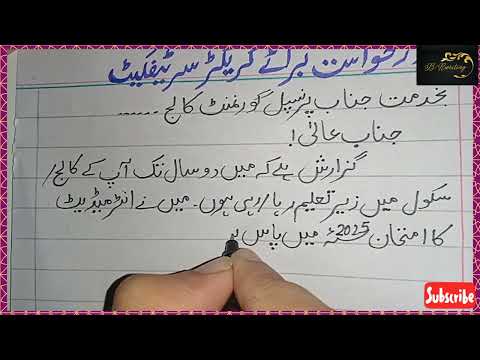 درخواست برائے کریکٹر سرٹیفکیٹ
بخدمت جناب پرنسپل گورنمنٹ کالج ......
جناب عالی!
گزارش ہے کہ میں دو سال تک آپ کے کالج/
سکول میں زیر تعلیم رہا/رہی ہوں۔ میں نے انٹرمیڈیٹ
کا امتحان 2025ء میں پاس
Subscribe